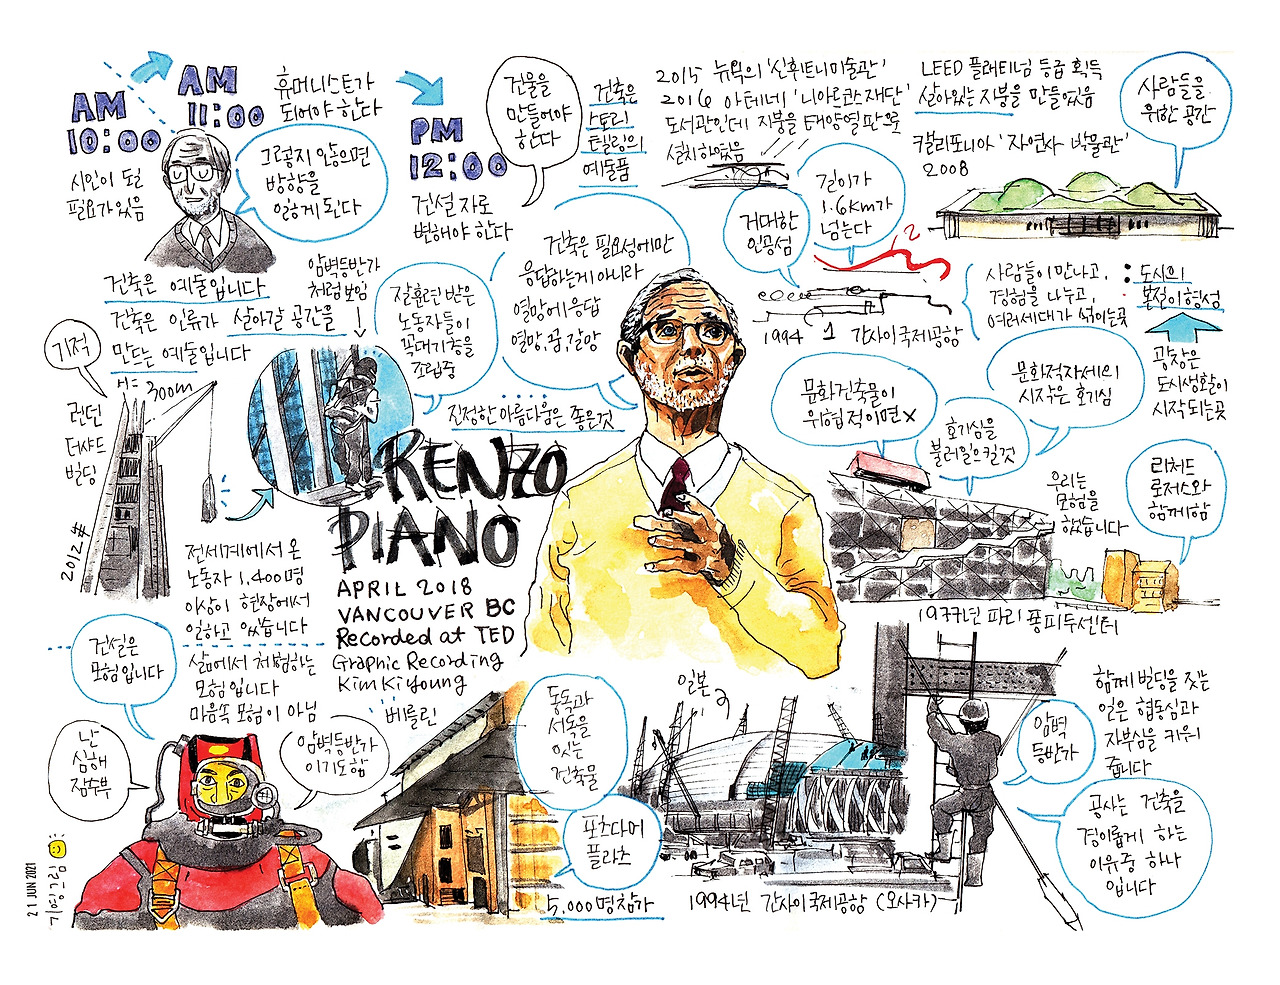 AM
10:00
시인이 될
필요가 있음
AM
11:00
휴머니스트가
되어야 한다
그렇지 않으면
방향을
잃게 된다
PM
12:00
건설자로
변해야 한다
건물을
만들어야
한다
건축은
스토리
텔링의
예술품
2015 뉴욕의 '신휘트니미술관'
2016 아테네 '니아르코스재단'
도서관인데 지붕을 태양열판으로
설치하였음
LEED 플래티넘 등급 획득
살아있는 지붕을 만들었음
캘리포니아 '자연사 박물관'
2008
사람들을
위한 공간
건축은 예술입니다
건축은 인류가 살아갈 공간을
만드는 예술입니다
암벽등반가
처럼 보임
잘 훈련 받은
노동자들이
꼭대기층을
조립중
건축은 필요성에만
응답하는게 아니라
열망에 응답
열망, 꿈, 갈망
진정한 아름다움은 좋은것
거대한
인공섬
길이가
1.6km가
넘는다
2
1994 1 간사이국제공항
사람들이 만나고,
경험을 나누고,
여러세대가 섞이는곳
: 도시의
본질이 형성
광장은
도시생활이
시작되는곳
기적
H= 300m
런던
더샤드
빌딩
2012年
전세계에서 온
노동자 1,400명
이상이 현장에서
일하고 있습니다
RENZO
PIANO
APRIL 2018
VANCOUVER BC
Recorded at TED
Graphic Recording
Kim Ki young
문화건축물이
위협적이면 X
문화적자세의
시작은 호기심
호기심을
불러일으킬것
우리는
모험을
했습니다
리처드
로저스와
함께함
1977년 파리 퐁피두센터
건설은
모험입니다
삶에서 체험하는
모험입니다
마음속 모험이 아님
난
심해
잠수부
암벽등반가
이기도 함
베를린
동독과
서독을
잇는
건축물
포츠다머
플라츠
5,000명 참가
일본
1994년 간사이국제공항 (오사카)
암벽
등반가
함께 빌딩을 짓는
일은 협동심과
자부심을 키워
줍니다
공사는 건축을
경이롭게 하는
이유중 하나
입니다
21 JUN 2021
기영그림